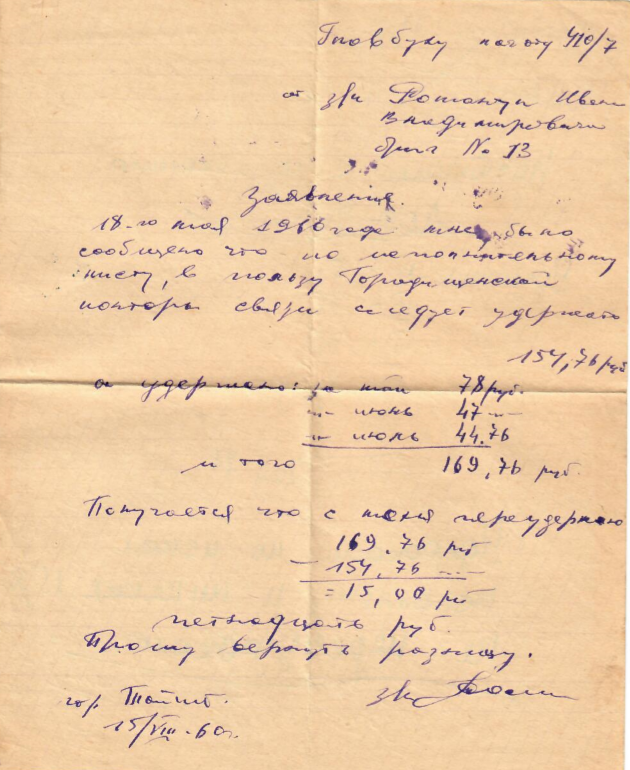 Главбуху п/о ту 410/7
от з/к Романчук Ивана
Владимировича
бриг No 13
Заявления.
18-го мая 1960 года мне было
сообщено что по исполнительному
листу, в пользу Городищенской
конторы связи следует удержать
154,76 руб
а удержано: за май 78 руб.
-"- июнь 47 -"-
-"- июль 44.76
и того 169,76 руб.
Получается что с меня переудержано
169,76 руб
- 154,76 -"-
= 15,00 руб
петнадцать руб.
Прошу вернуть разницу.
гор. Тайшет. з/к
15/VIII-60г.